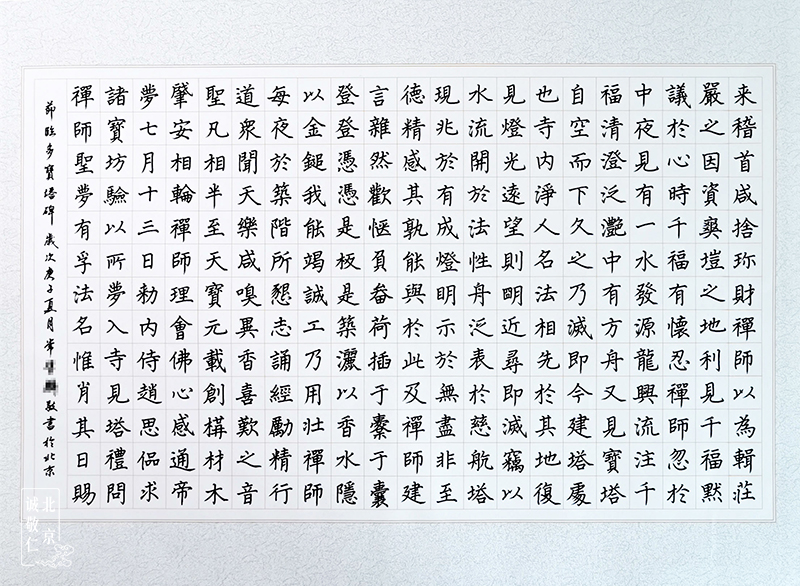 来稽首咸捨珎財禪師以為輯莊
嚴之因資爽塏之地利見千福默
議於心時千福有懷忍禪師忽於
中夜見有一水發源龍興流注千
福清澄泛灔中有方舟又見寶塔
自空而下久之乃滅即今建塔處
也寺内淨人名法相先於其地復
見燈光遠望則明近尋即滅竊以
水流開於法性舟泛表於慈航塔
現兆於有成燈明示於無盡非至
德精感其孰能與於此及禪師建
言雜然歡愜負畚荷插于橐于囊
登登憑憑是板是築灑以香水隱
以金鎚我能竭誠工乃用壮禪師
每夜於築階所懇志誦經勵精行
道衆聞天樂咸嗅異香喜歎之音
聖凡相半至天寶元載創構材木
肇安相輪禪師理會佛心感通帝
夢七月十三日勅内侍趙思侃求
諸寶坊驗以所夢入寺見塔禮問
禪師聖夢有孚法名惟肖其日賜
節臨多寶塔碑 歲次庚子夏月常 敬書於北京
北京
诚敬仁